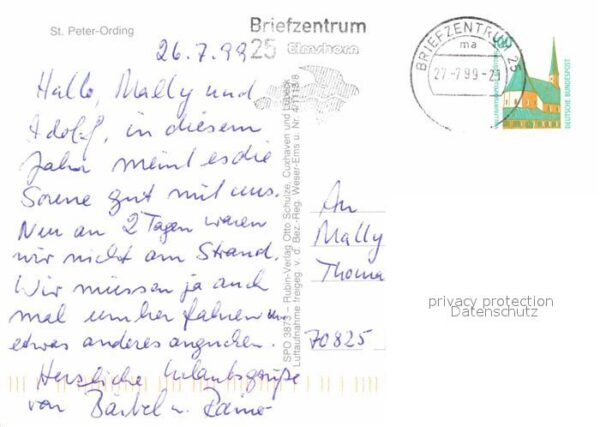 St. Peter-Ording
Briefzentrum
25 Elmshorn
BRIEFZENTRUM 25
ma
27-7.99-21
DEUTSCHE BUNDESPOST
26.7.99
Hallo, Mally und
Adolf, in diesem
Jahr meint es die
Sonne gut mit uns.
Nur an 2 Tagen waren
wir nicht am Strand.
Wir müssen ja auch
mal umher fahren um
etwas anderes angucken.
Herzliche Urlaubsgrüße
von Bärbel u. Rainer
SPO 3873 – Rubin-Verlag Otto Schulze, Cuxhaven und Lübeck
Luftaufnahme freigeg. v. d. Bez.-Reg. Weser-Ems u. Nr.
An
Mally
Thoma
70825
privacy protection
Datenschutz